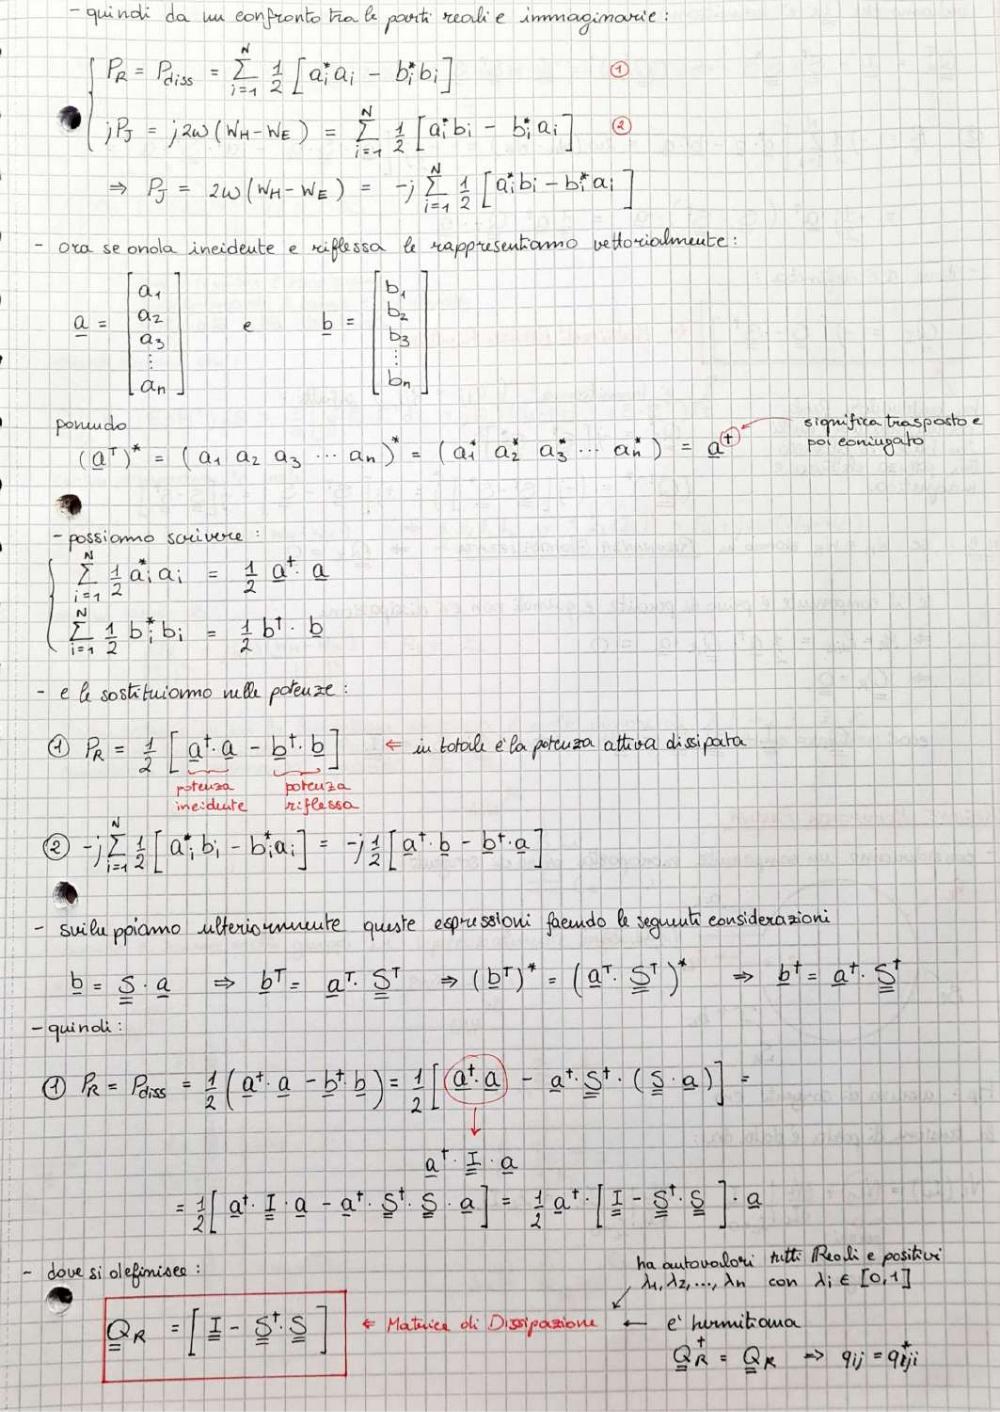 - quindi da un confronto tra le parti reali e immaginarie:
P_R = P_diss = Σ_{i=1}^{N} 1/2 [a_i^* a_i - b_i^* b_i] ①
jP_J = j2ω(W_H - W_E) = Σ_{i=1}^{N} 1/2 [a_i^* b_i - b_i^* a_i] ②
⇒ P_J = 2ω(W_H - W_E) = -j Σ_{i=1}^{N} 1/2 [a_i^* b_i - b_i^* a_i]
- ora se onda incidente e riflessa le rappresentiamo vettorialmente:
a = [a_1 a_2 a_3 ⋮ a_n] e b = [b_1 b_2 b_3 ⋮ b_n]
ponendo
(a^T)^* = (a_1 a_2 a_3 ⋯ a_n)^* = (a_1^* a_2^* a_3^* ⋯ a_n^*) = a^† ← significa trasposto e
poi coniugato
- possiamo scrivere:
Σ_{i=1}^{N} 1/2 a_i^* a_i = 1/2 a^† · a
Σ_{i=1}^{N} 1/2 b_i^* b_i = 1/2 b^† · b
- e le sostituiamo nelle potenze:
① P_R = 1/2 [a^† · a - b^† · b] ⇐ in totale è la potenza attiva dissipata
potenza incidente potenza riflessa
② -j Σ_{i=1}^{N} 1/2 [a_i^* b_i - b_i^* a_i] = -j 1/2 [a^† · b - b^† · a]
- sviluppiamo ulteriormente queste espressioni facendo le seguenti considerazioni
b = S · a ⇒ b^T = a^T · S^T ⇒ (b^T)^* = (a^T · S^T)^* ⇒ b^† = a^† · S^†
- quindi:
① P_R = P_diss = 1/2 (a^† · a - b^† · b) = 1/2 [a^† · a - a^† · S^† · (S · a)] =
↓
a^† · I · a
= 1/2 [a^† · I · a - a^† · S^† · S · a] = 1/2 a^† · [I - S^† · S] · a
- dove si definisce:
ha autovalori tutti Reali e positivi
λ_1, λ_2, ..., λ_n con λ_i ∈ [0,1]
Q_R = [I - S^† · S] ⇐ Matrice di Dissipazione ← e' hermitiana
Q_R^† = Q_R ⇒ q_ij = q_ji^*